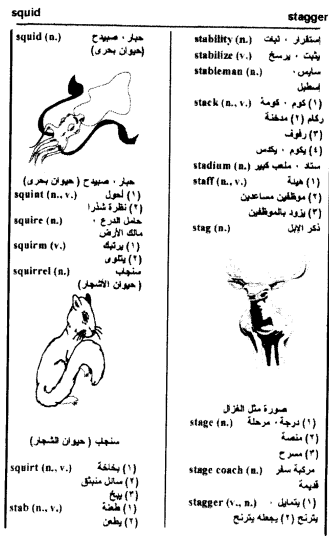 squid
stagger
squid (n.) حبار ٠ صبيدح
(حيوان بحرى)
حبار ٠ صبيدح ( حيوان بحرى)
squint (n., v.) (١) أحول
(٢) نظرة شذرا
squire (n.) حامل الدرع ٠
مالك الأرض
squirm (v.) (١) يرتبك
(٢) يتلوى
squirrel (n.) سنجاب
( حيوان الأشجار)
سنجاب ( حيوان الشجار)
squirt (n., v.) (١) بخاخة
(٢) سائل منبثق
(٣) يبخ
stab (n., v.) (١) طعنة
(٢) يطعن
stability (n.) إستقرار ٠ ثبات
stabilize (v.) يثبت ٠ يرسخ
stableman (n.) سايس ٠
إسطبل
stack (n., v.) (١) كوم ٠ كومة
ركام (٢) مدخنة
(٣) رفوف
(٤) يكوم ٠ يكدس
stadium (n.) ستاد ٠ ملعب كبير
staff (n., v.) (١) هيئة
(٢) موظفين مساعدين
(٣) يزود بالموظفين
stag (n.) ذكر الإبل
صورة مثل الغزال
stage (n.) (١) درجة ٠ مرحلة
(٢) منصة
(٣) مسرح
stage coach (n.) مركبة سفر
قديمة
stagger (v., n.) (١) يتمايل ٠
يترنح (٢) يجعله يترنح